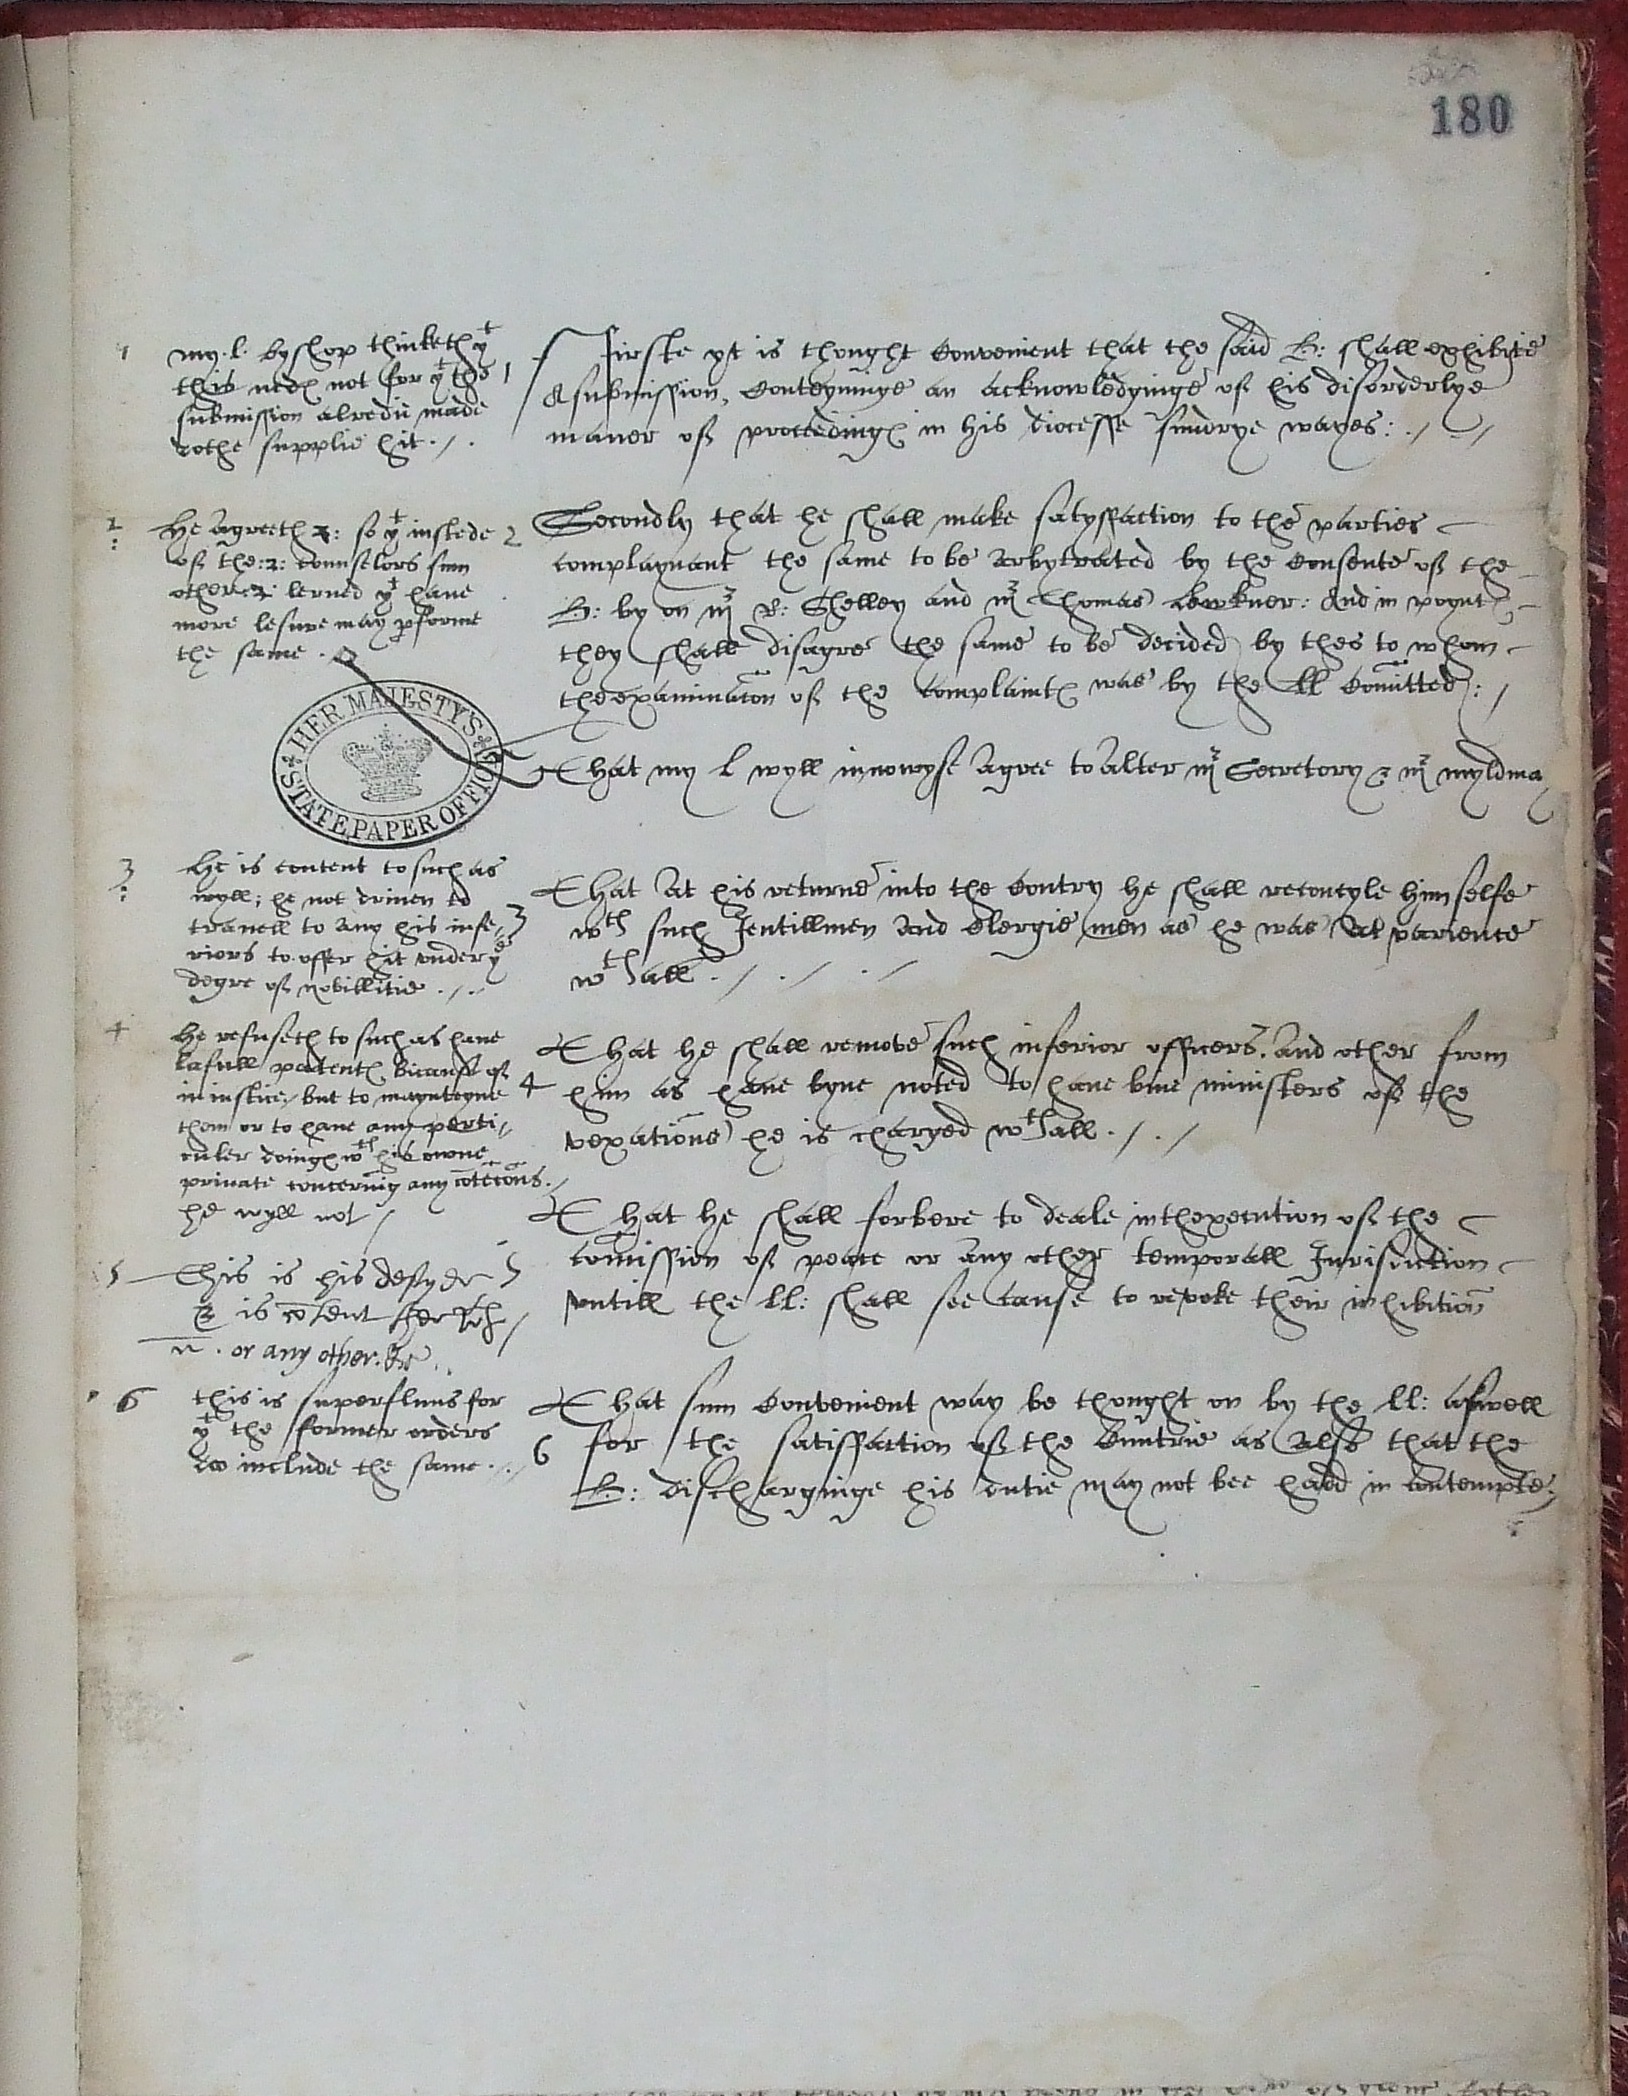 180
1 my .l. byshop thinketh yt
this nedes not for yt the
submission alredie made
dothe supplie hit ./.
1 Firste yt is thought Convenient that the said B: shall exhibite
A submission, Conteyninge an acknowledginge of his disorderlye
maner of procedinges in his diocesse sundrye wayes: ./ ./
2 He Agreeth 2: so yt instede
of the :2: counselors sum
other :2: lerned yt have
more lesure may performe
the same .
2 Secondly that he shall make satysfaction to the parties
complaynant the same to be Arbytrated by the Consente of the
B: by on mr R: Shelley and mr Thomas Lewkner: And in poyntes
they shall disagre the same to be decided by thes to whom
the examinacon of the complaintes was by the ll Comitted: /
HER MAJESTY'S STATE PAPER OFFICE
That my L wyll in nowyse Agree to Alter mr Secretory & mr myldmay
3 He is content to such as
wyll; he not driven to
travell to Any his infe//
riors to offer hit under ye
degre of nobillitie ./.
3 That At his returne into the Contry he shall reconcyle him selfe
wth such Jentillmen And Clergie men as he was At varience
wth all ./ ./ ./
4 He refuseth to such as have
lafull patentes bicause of
iniustice, but to maynteyne
them or to have any perti//
culer doinges wth his owne
private concerning any contencons ./
he wyll not /
4 That he shall remove such inferior officers. And other from
him as have byne noted to have bine ministers of the
vexations he is charged wth all ./ ./
5 This is his desyer
& is content
or any other. &c
5 That he shall forbere to deale in thexecution of the
comission of peace or Any other temporall Jurisdiction
untill the ll: shall see cause to revoke their inhibition
6 this is superfluus for
yt the former orders
do include the same ./.
6 That sum Convenient way be thought on by the ll: aswell
for the satisfaction of the Cuntrie as Also that the
B: discharginge his dutie may not bee hadd in contempte./